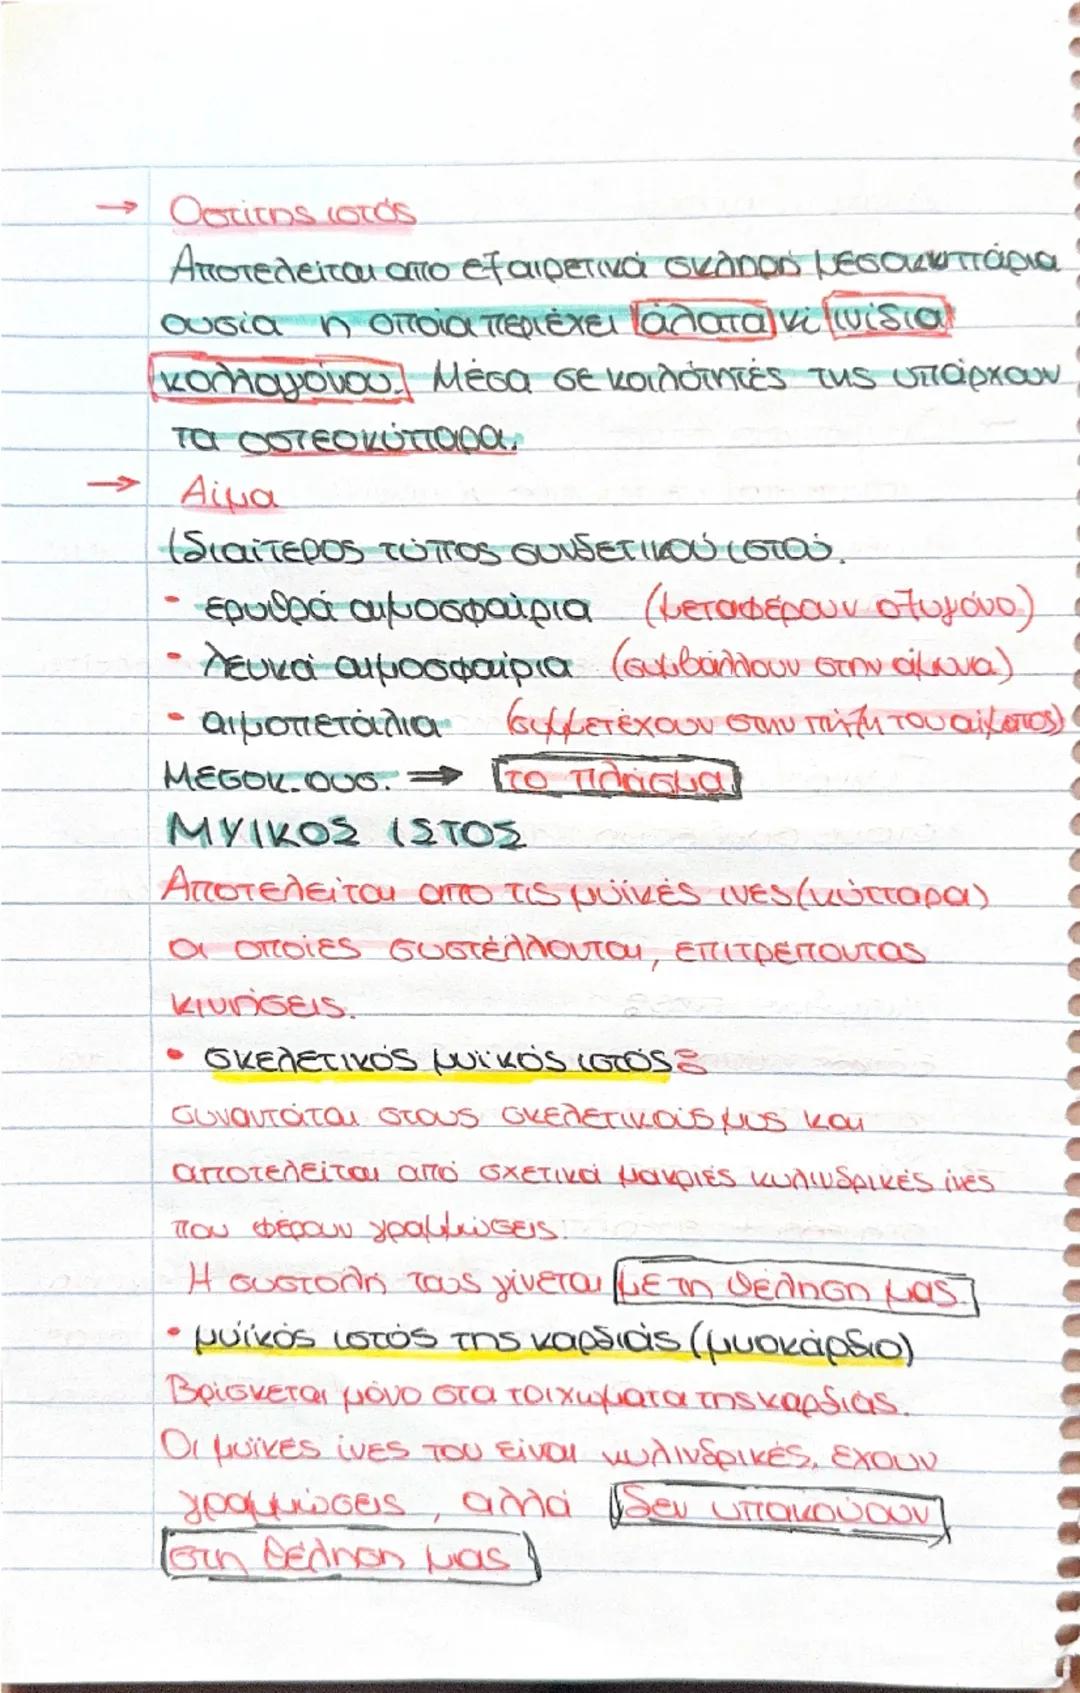 → Οστίτης ιστός
Αποτελείται απο εξαιρετικά σκληρή μεσοκυττάρια
ουσία η οποία περιέχει άλατα κ' ινίδια
κολλαγόνου. Μέσα σε κοιλότητές της υπάρχουν
τα οστεοκύτταρα.
→ Αίμα
Ιδιαίτερος τύπος συνδετικού ιστού.
• ερυθρά αιμοσφαίρια (μεταφέρουν οξυγόνο)
• λευκά αιμοσφαίρια (συμβάλλουν στην άμυνα)
• αιμοπετάλια (συμμετέχουν στην πήξη του αίματος)
Μεσοκ. ουσ. ⇒ το πλάσμα
ΜΥΙΚΟΣ ΙΣΤΟΣ
Αποτελείται απο τις μυϊκές ινες (κύτταρα)
οι οποίες συστέλλονται, επιτρέποντας
κινήσεις.
• σκελετικός μυϊκός ιστός:
συναντάται στους σκελετικούς μυς και
αποτελείται από σχετικά μακριές κυλινδρικές ίνες
που φέρουν γραμμώσεις.
Η συστολή τους γίνεται με τη θέληση μας.
• μυϊκός ιστός της καρδιάς (μυοκάρδιο)
Βρίσκεται μόνο στα τοιχώματα της καρδιάς.
Οι μυϊκές ίνες του είναι κυλινδρικές, έχουν
γραμμώσεις, αλλά δεν υπακούουν
στη θέληση μας